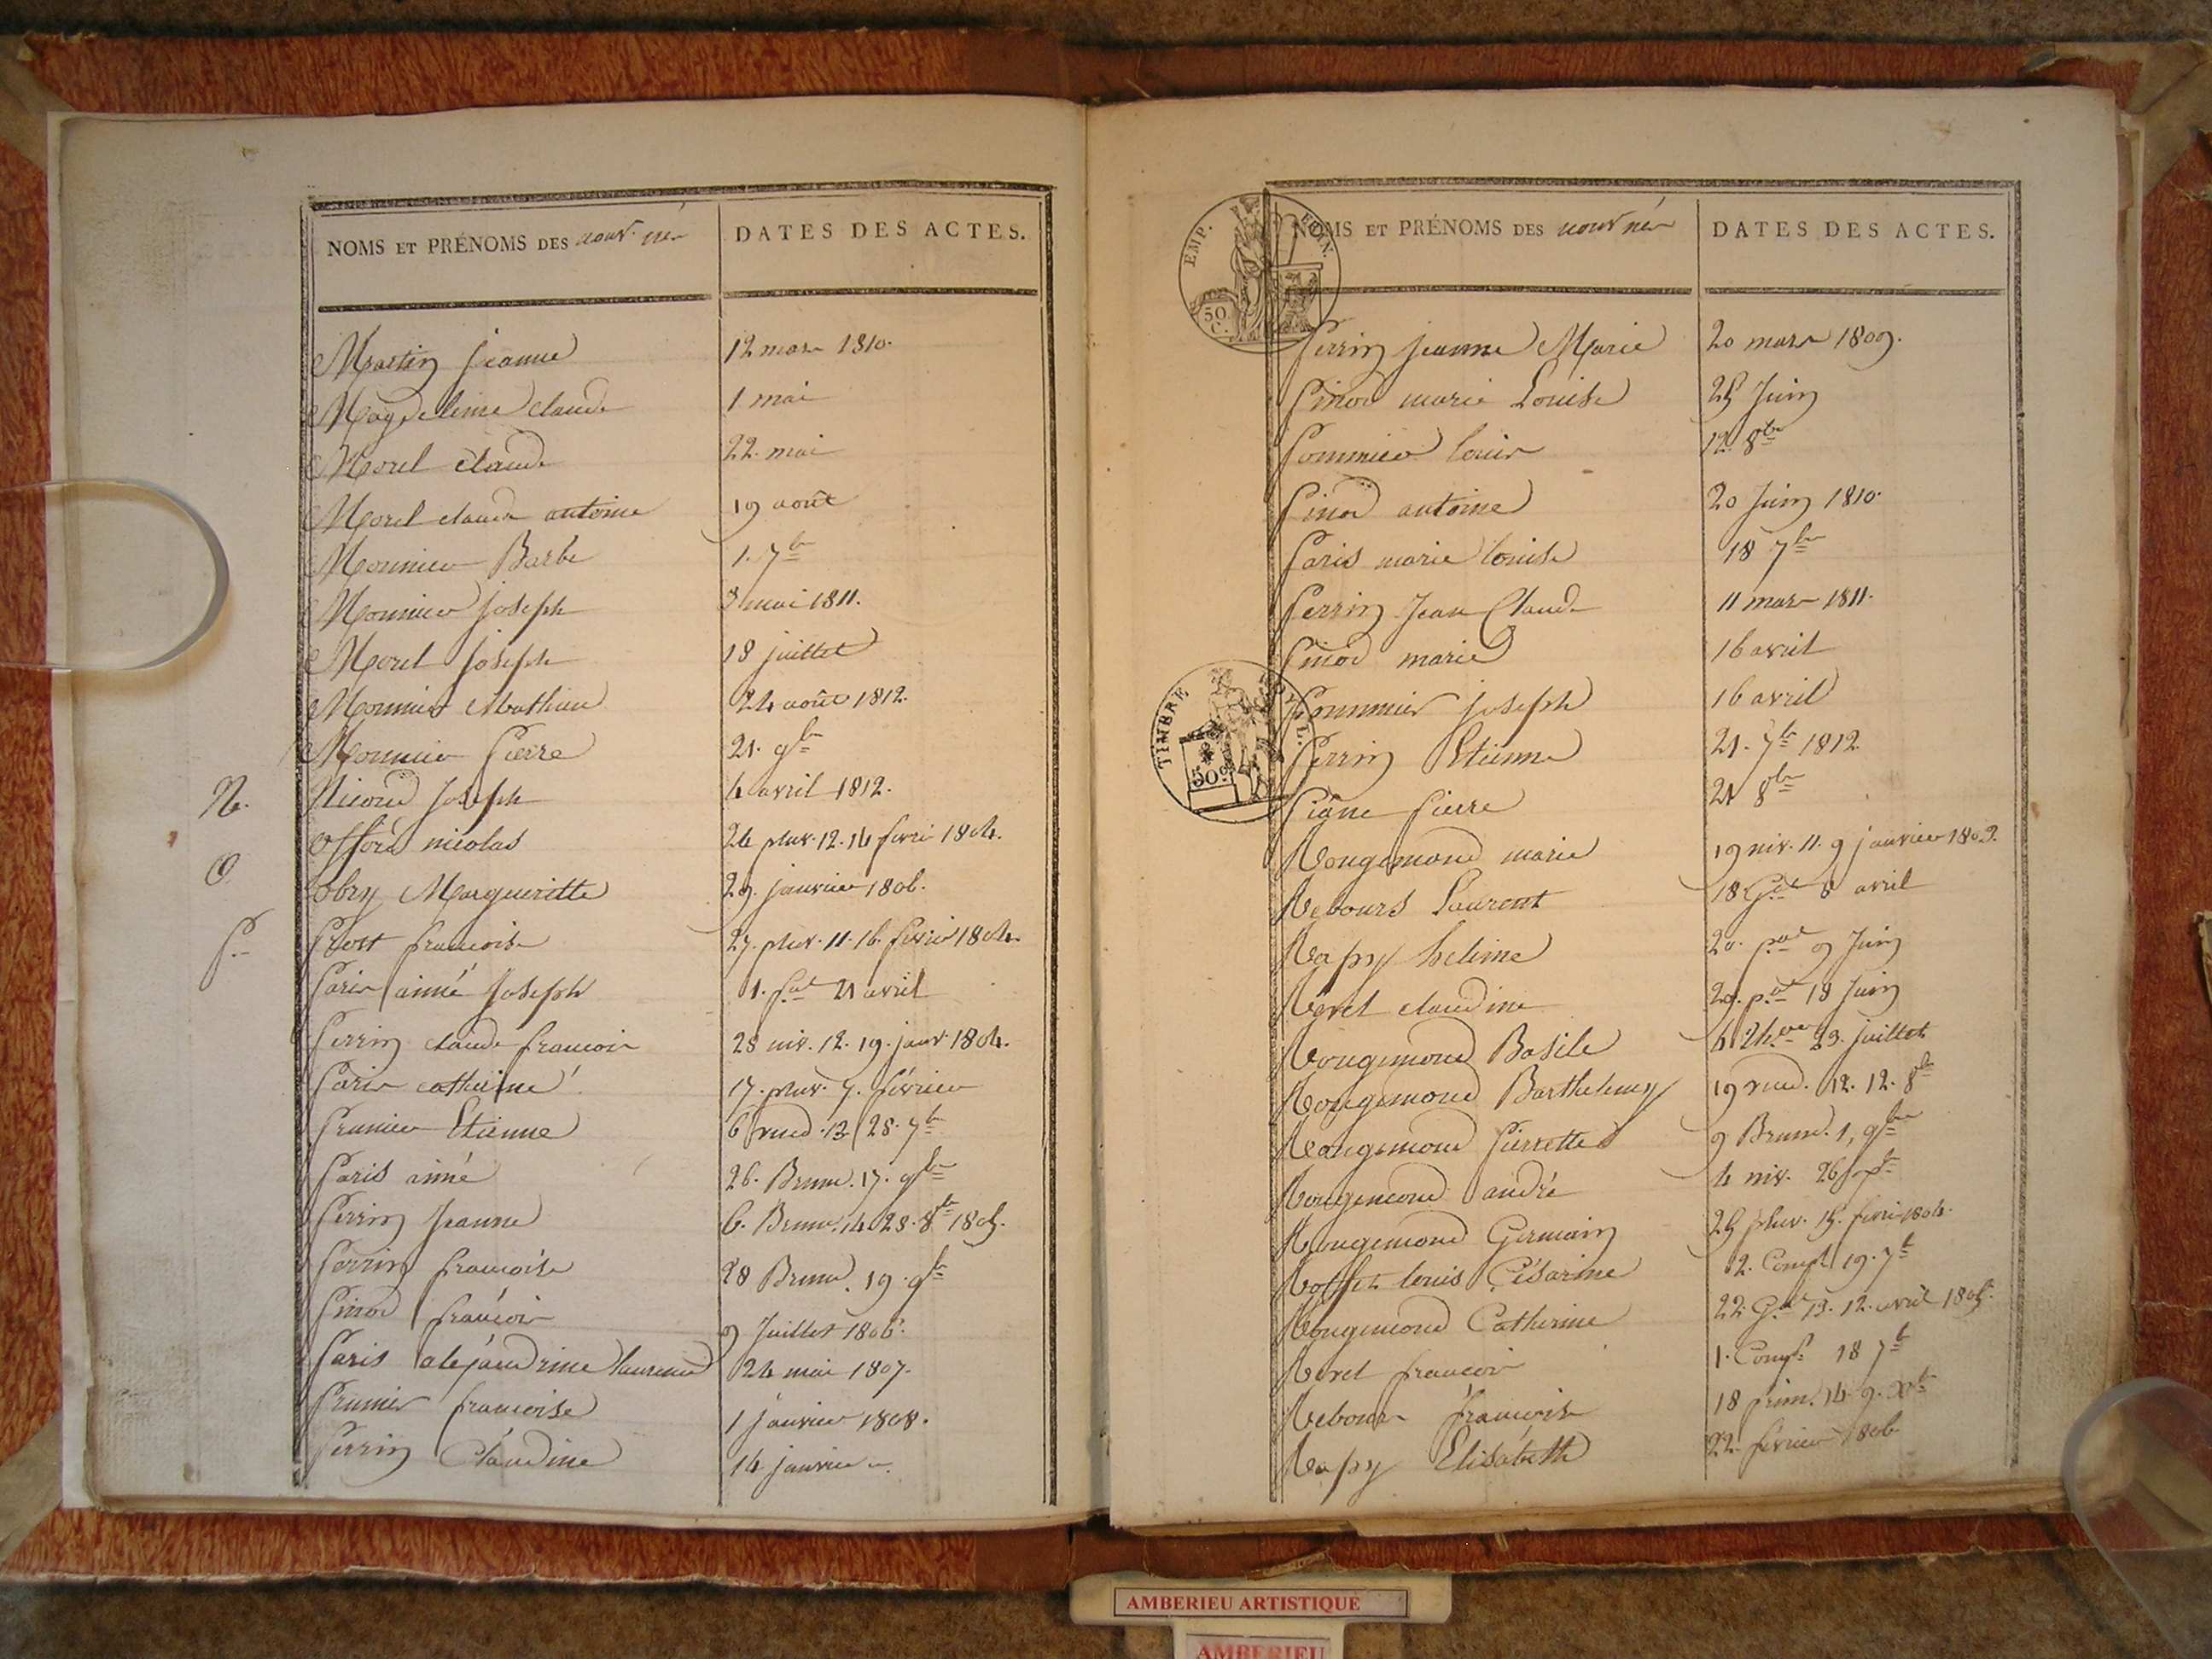 NOMS ET PRÉNOMS DES nouv. nés DATES DES ACTES.
Martin jeanne 12 mars 1810.
Magdeleine claude 1 mai
Morel claude 22. mai
Morel claude antoine 19 août
Monnier Barbe 1. 7bre
Monnier joseph 3 mai 1811.
Morel joseph 18 juillet
Monnier Mathieu 24 août 1812.
Monnier Pierre 21. 9bre
N. Nicoud Joseph 4 avril 1812.
nicolas 24 pluv. 12. 14 fevri 1804.
O. obry Margueritte 29. janvier 1806.
P. francoise 27. pluv. 11. 16. fevrier 1804.
Paris aimé Joseph 1. 21 avril
Perrin claude francois 28 niv. 12. 19. janv. 1804.
Paris catherine 17. pluv. 7. février
Prunier Etienne 6 vend. 13 28. 7bre
Paris aimé 26. Brum. 17. 9bre
Perrin Jeanne 6. Brum. 14. 28. 8bre 1805.
Perrin francoise 28 Brum. 19. 9bre
Pinod françois 9 Juillet 1806.
Paris alejandrine 24 mai 1807.
Prunier francoise 1 janvier 1808.
Perrin Claudine 14 janvier
EMP. 50 C.
NOMS ET PRÉNOMS DES nouv nés DATES DES ACTES.
Perrin jeanne Marie 20 mars 1809.
Pinod marie Louise 25 Juin
Pommier louis 12. 8bre
Pinod antoine 20 Juin 1810.
Paris marie louise 18 7bre
Perrin Jean Claude 11 mars 1811.
Pinod marie 16 avril
Pommier joseph 16 avril
TIMBRE 50c
Perrin Etienne 21. 7bre 1812.
Pierre 21 8bre
Rougemond marie 19 niv. 11. 9 janvier 1803.
Rebours Laurent 18 8 avril
Rapy heleine 20. 9 Juin
Revel claudine 29. 18 Juin
Rougemond Basile 23. juillet
Rougemond Barthelemy 19 vend. 12. 12. 8bre
Rougemond Pierrette 9 Brum. 1, 9bre
Rougemond andré 4 niv. 26
Rougemond Germain 25 pluv. 15. fevri 1804.
louis Césarine 2. Compl. 19. 7bre
Rougemond Catherine 22. 13. 12. avril 1805.
Revel francois 1. Comp. 18 7bre
Rebours francoise 18 frim. 14. 9. Xbre
Rapy Elisabeth 22. février 1806
AMBERIEU ARTISTIQUE
AMBERIEU